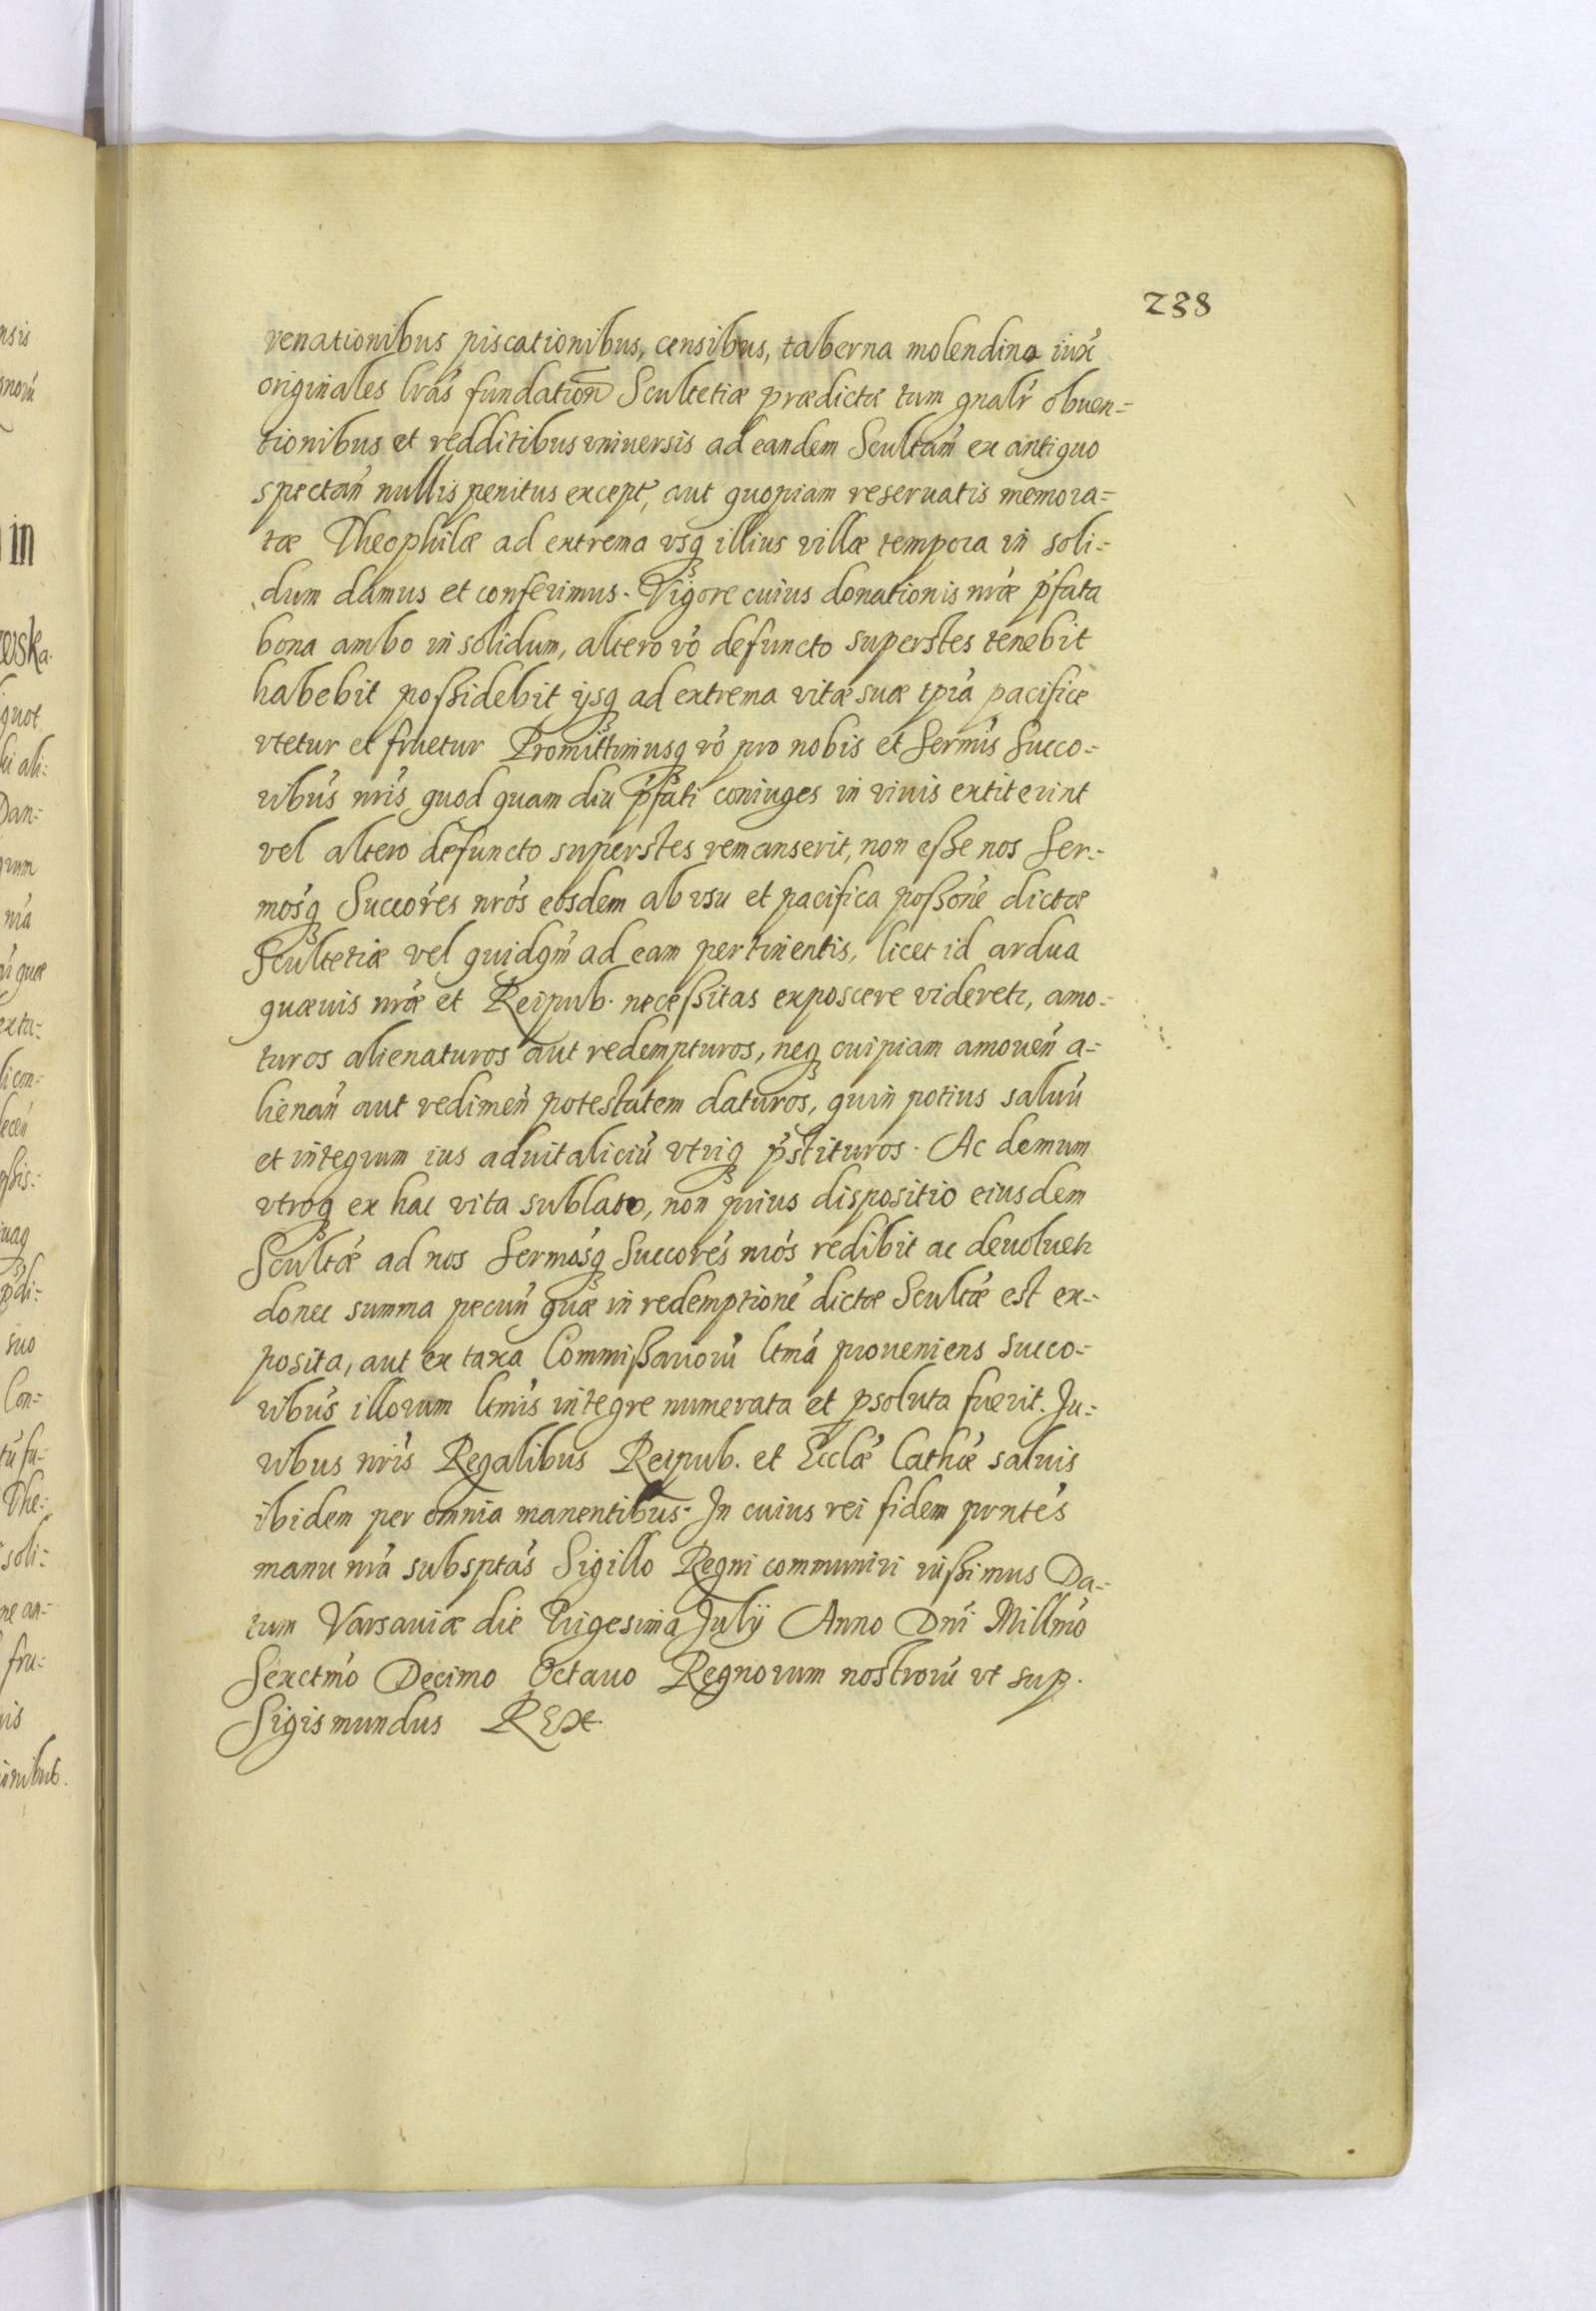 238
venationibus piscationibus, censibus, taberna molendino iux̃
originales lrás fundation̄ Scultetiæ prædictæ tum gnalr̃ obuen=
tionibus et redditibus vniuersis ad eandem Scultam̃ ex antiquo
spectan̄ nullis penitus except, aut quopiam reseruatis memora=
tæ Theophilæ ad extrema vsq illius villæ tempora in soli=
dum damus et conferimus. Vigore cuius donationis nrǽ p̃fata
bona ambo in solidum, altero vó defuncto superstes tenebit
habebit poßidebit ijsq ad extrema vitæ suæ tpiá pacifice
vtetur et fruetur Promittimusq vó pro nobis et Sermís Succo=
ribús nrís quod quam diu p̃fati coniuges in viuis extiterint
vel altero defuncto superstes remanserit, non eße nos Ser=
mósq Succorés nrós eosdem ab vsu et pacifica poßoné dictæ
Scultetiæ vel quidqm̃ ad eam pertinentis, licet id ardua
quæuis nrǽ et Reipub. neceßitas exposcere videretr, amo=
turos alienaturos aut redempturos, neq cuipiam amouen̄ a=
lienan̄ aut redimen̄ potestatem daturos, quin potius saluũ
et integrum ius aduitaliciũ vtriq p̃stituros. Ac demum
vtroq ex hac vita sublato, non prius dispositio eiusdem
Scultǽ ad nos Sermósq Succorés nrós redibit ac deuoluetr
donec summa pecun̄ quæ in redemptioné dictæ Scultǽ est ex=
posita, aut ex taxa Commißariorũ ltmá proueniens succo=
ribús illorum ltmís integre numerata et psoluta fuerit. Iu=
ribus nrís Regalibus Reipub. et Ecclǽ Cathǽ saluis
ibidem per omnia manentibus. In cuius rei fidem prntés
manu nrá subsptás Sigillo Regni communiri iußimus Da=
tum Varsauiæ die Trigesima Julij Anno Dnĩ Millmó
Sexctmó Decimo Octauo Regnorum nostrorũ vt sup.
Sigismundus REX.